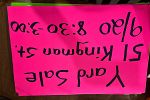 Yard Sale
51 Kingman St.
9/20 8:30-3:00